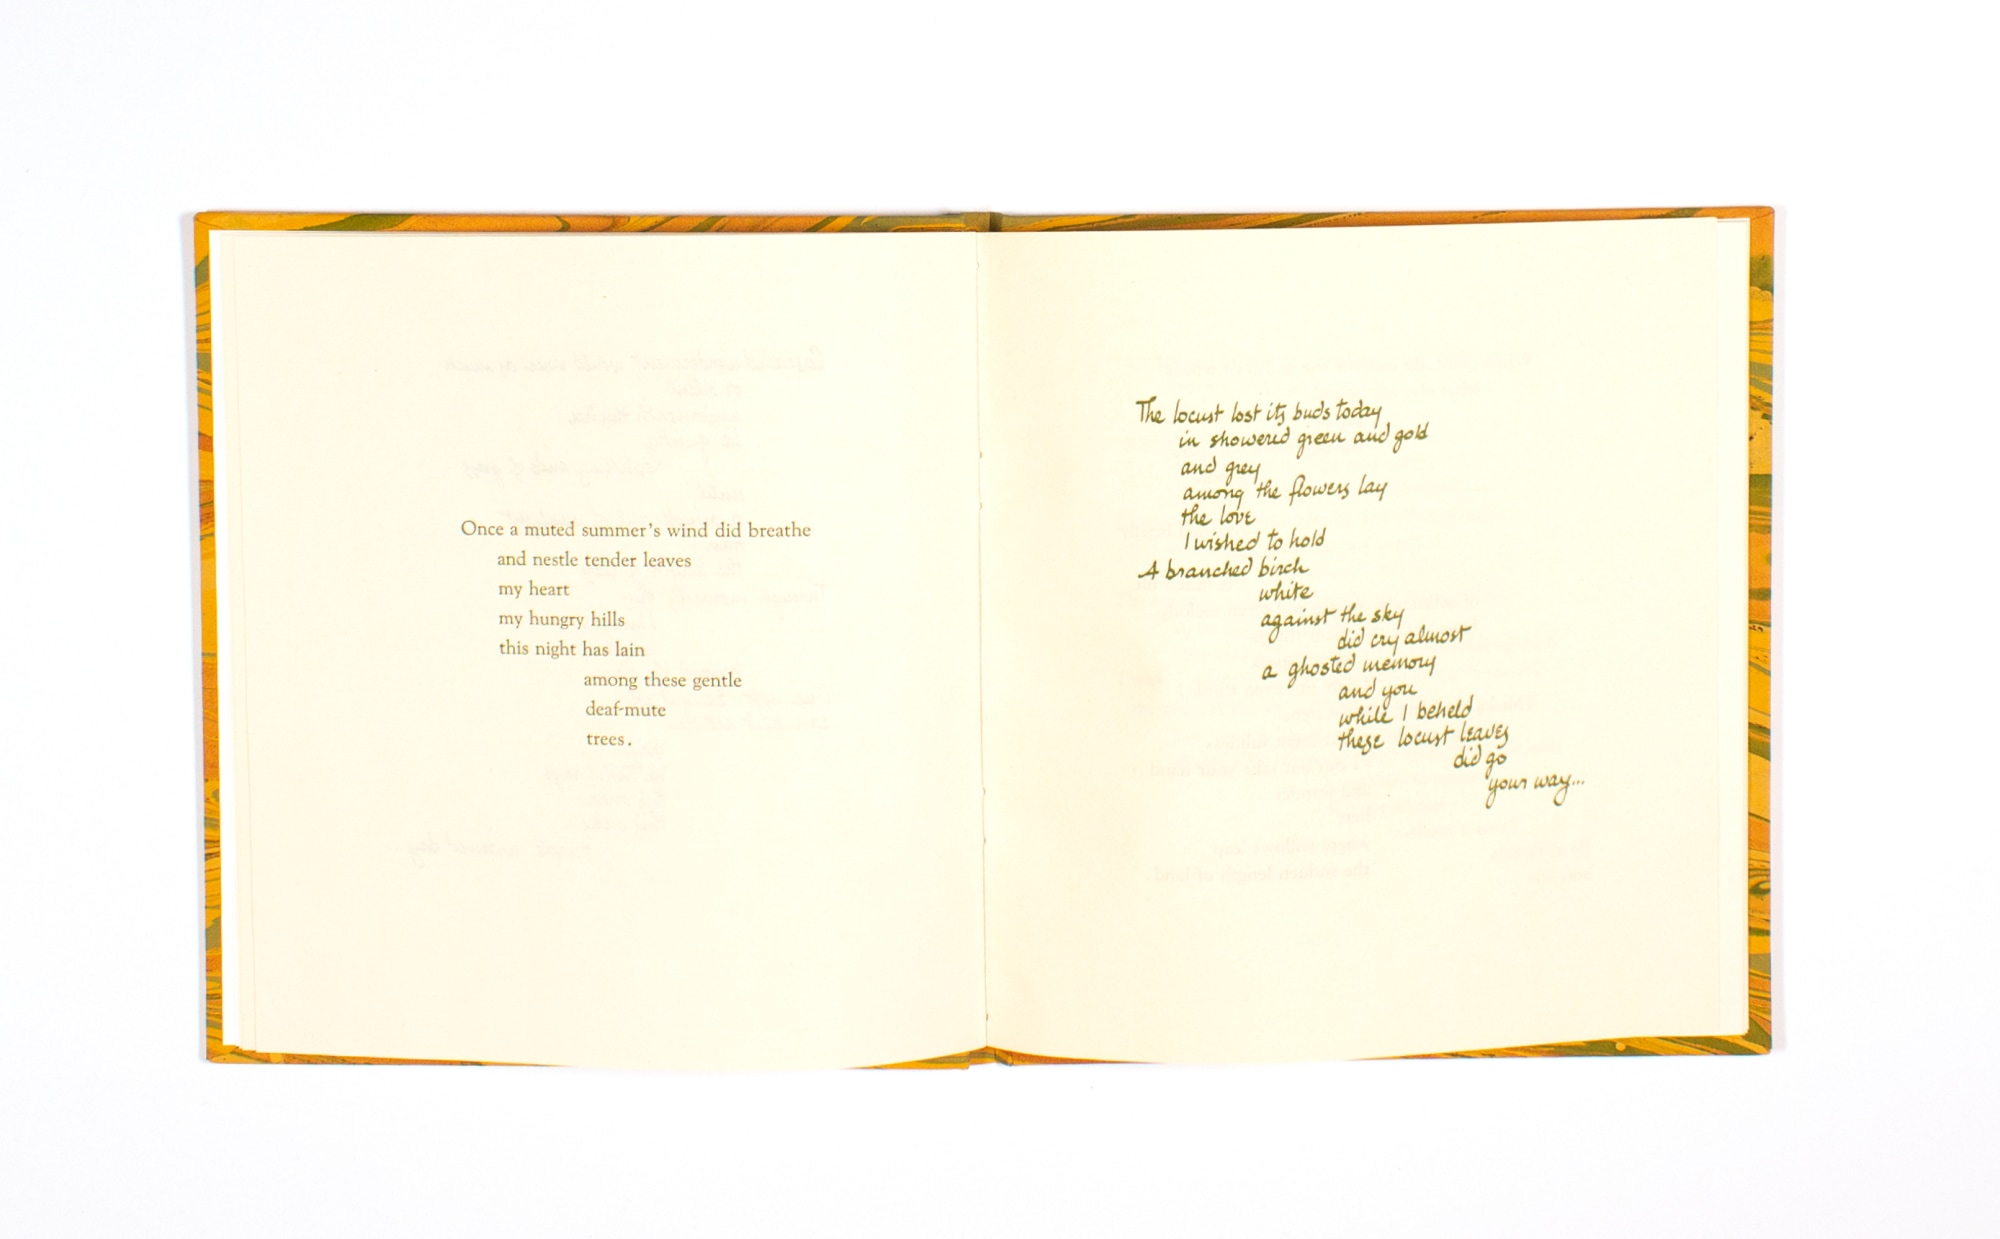 Once a muted summer's wind did breathe
and nestle tender leaves
my heart
my hungry hills
this night has lain
among these gentle
deaf-mute
trees.
The locust lost its buds today
in showered green and gold
and grey
among the flowers lay
the love
I wished to hold
A branched birch
white
against the sky
did cry almost
a ghosted memory
and you
while I beheld
these locust leaves
did go
your way...